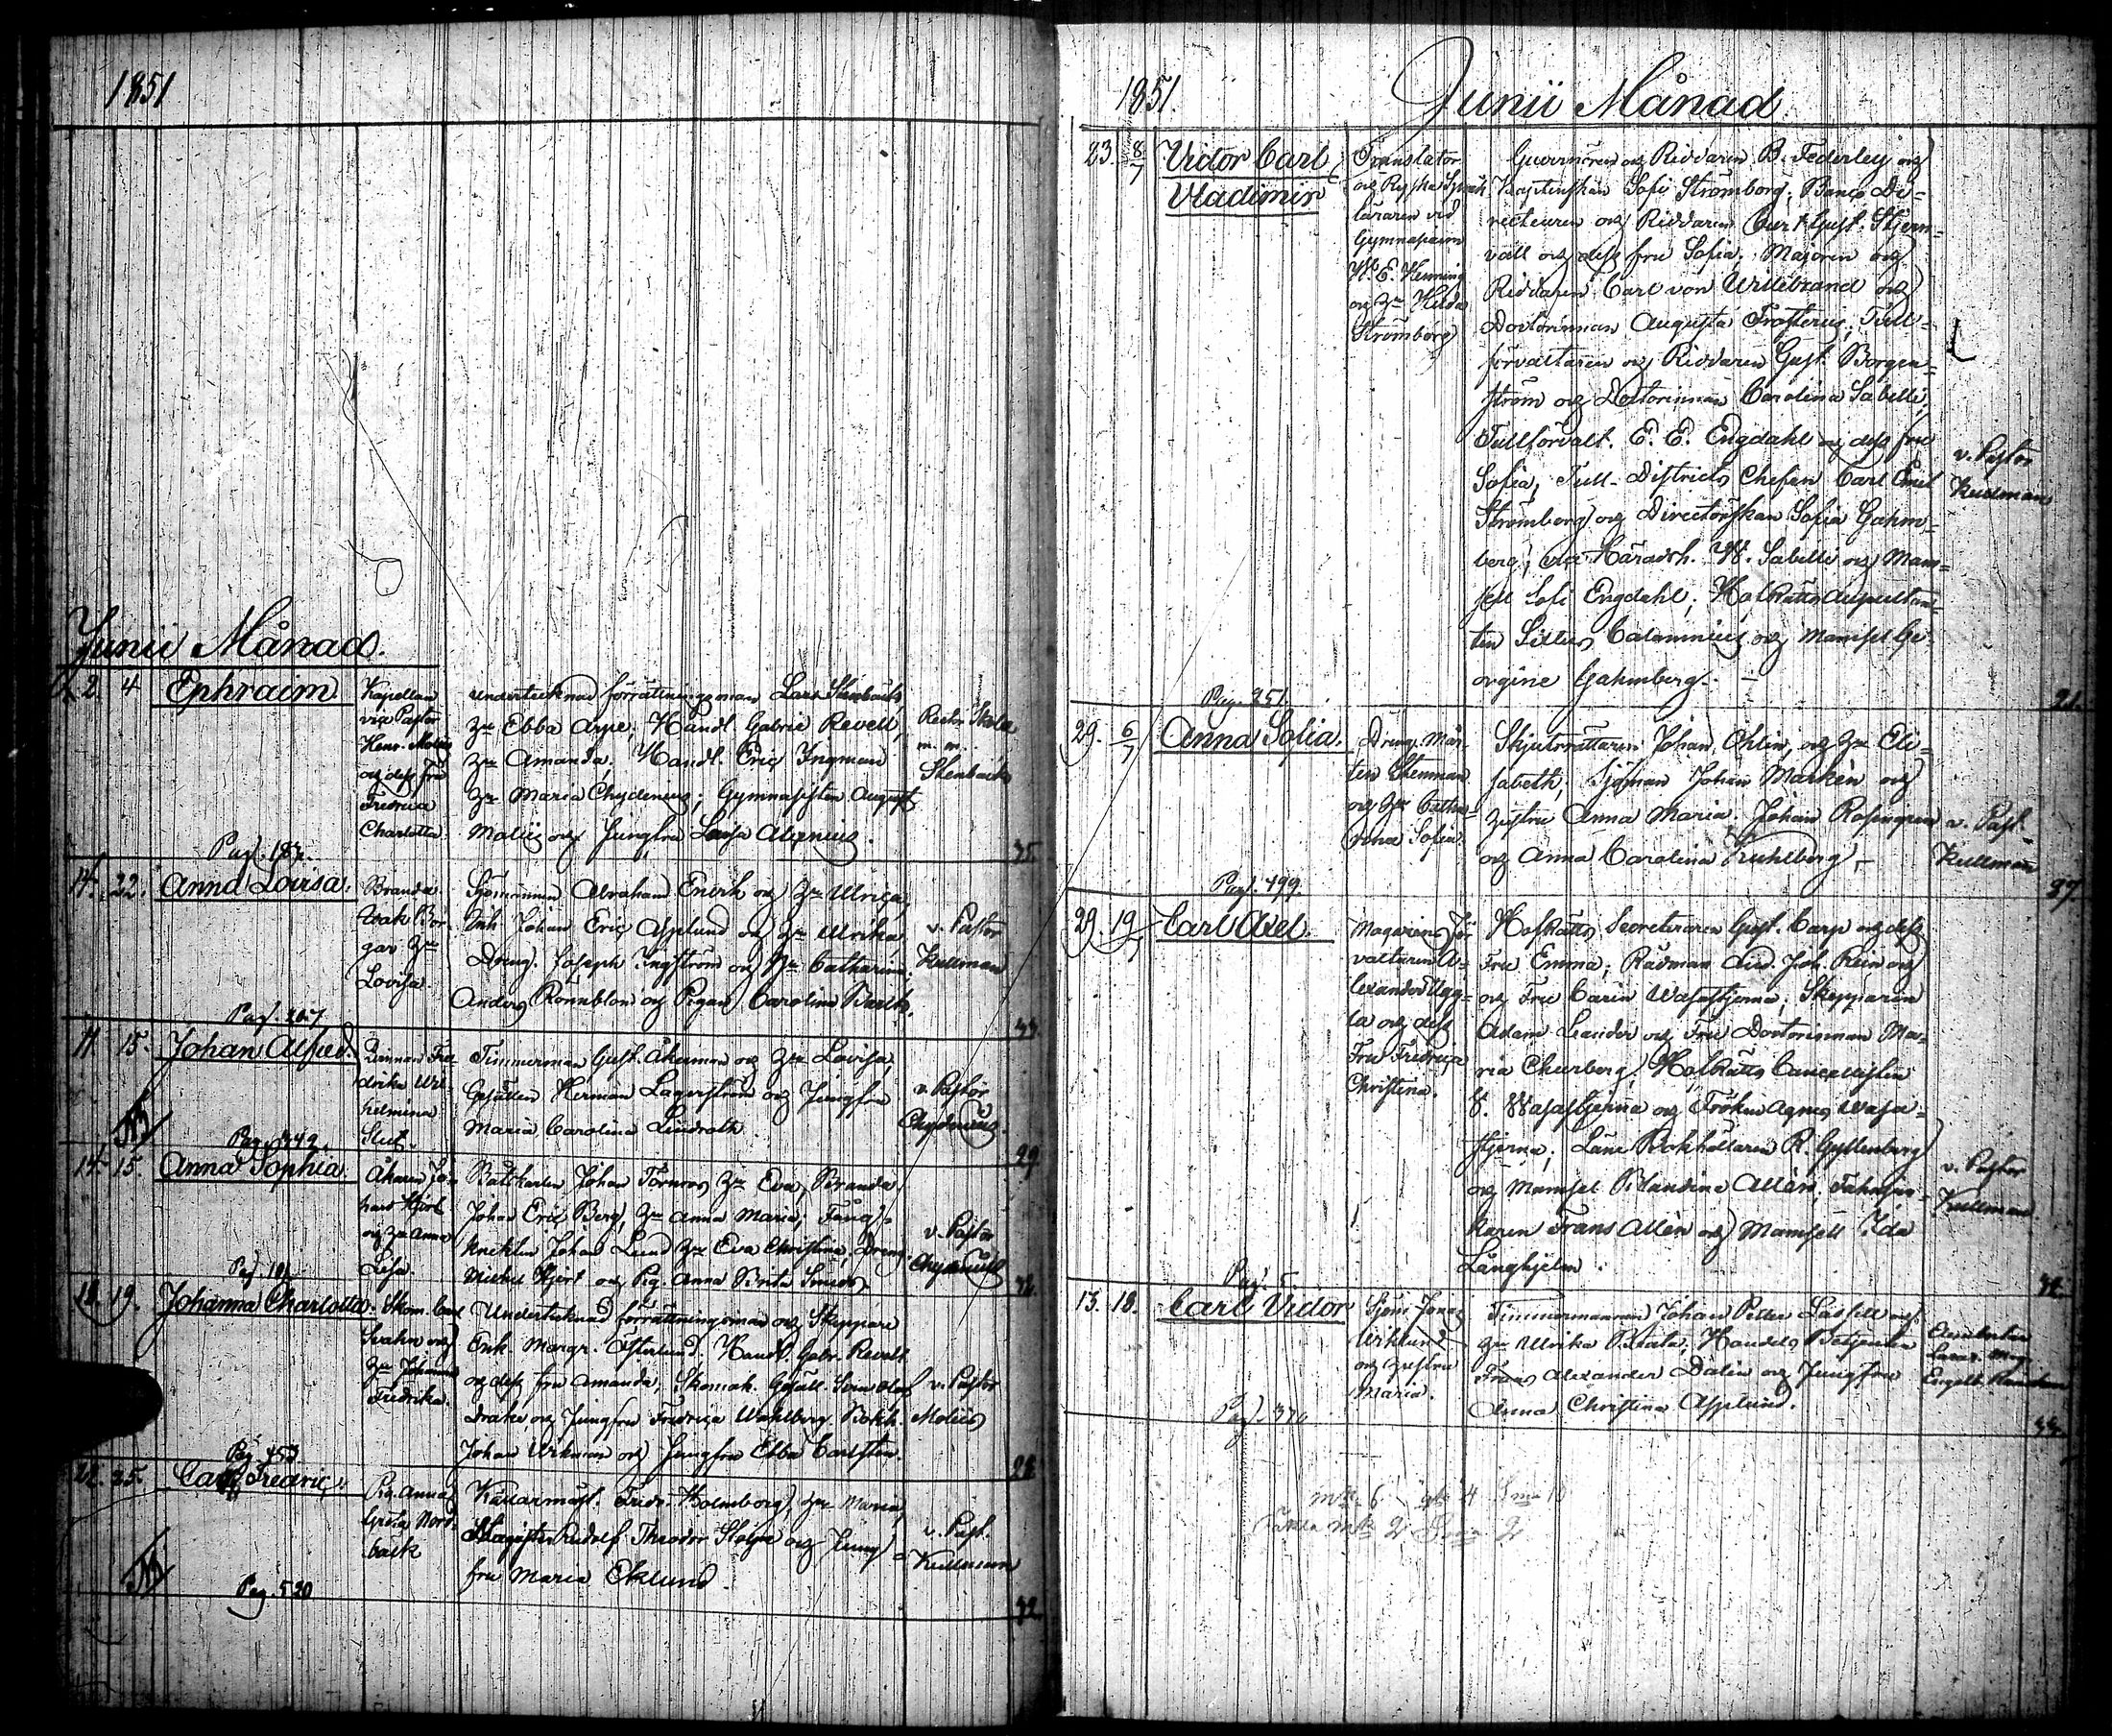 1851
Junii Månad.
2. 4 Ephraim
Kapellan
vice Pastor
Henr. Moliis
och dess fru
Fredrica
Charlotta
undertecknad förrättningsman Lars Stenbäck,
Zn Ebba Arpe; Handl. Gabriel Revell,
Zn Amanda, Handl. Eric Ingman
Zn Maria Chydenius; Gymnasisten August
Moliis och Jungfru Lovisa Alcenius.
Rector Schola
m. m.
Stenbäck
Pag. 187.
35.
14. 22. Anna Lovisa.
Branda
Bor-
gar
Lovisa.
Sjömannen Abraham Enerth och Zn Ulrica,
Inh Johan Eric Asplund och Zn Ulrika
Dreng. Joseph Ingström och Catharina.
Anders Rönnblom och Pigan Carolina Barck.
v. Pastor
Kullman
Pag. 267
11 15. Johan Alfred.
Qvinnan Fre-
drika Wil-
helmina
Timmerman Gust. Åkerman och Zn Lovisa,
Gesällen Herman Lagerström och Jungfru
Maria Carolina Lindroth
v. Pastor
Chydenius.
Pag. 342.
29
14. 15. Anna Sophia.
Åkaren Jo-
han Hjort
och Zn Anna
Lisa.
Båtskarlen Johan Törnroos Zn Eva, Branda
Johan Eric Berg, Zn Anna Maria; Fång-
knekten Johan Lund Zn Eva Christina, Dreng.
Michel Hjort och Pig. Anna Brita Smeds
v. Pastor
Chydenius
18. 19. Johanna Charlotta.
Skom. Carl
Svahn och
Zn Johanna
Fredrika.
Undertecknad förrättningsman och Skeppare
Enk. Margr. Österlund, Handl. Gabr. Revell
och dess fru Amanda, Skomak. Gesäll. Sven Olof
Drake och Jungfru Fredrica Wahlberg. Bokh.
Johan Wikman och Jungfru Ebba Carlsten.
v. Pastor
Moliis
Pag. 453
28
22. 25. Carl Fredric.
Pig. Anna
Greta Nord-
back
Källarmäst. Fredr. Holmborg, Zn Maria,
Magister Rudolf Theodor Stolpe och Jung-
fru Maria Eklund
v. Past.
Kullman
Pag. 520
32.
1851.
Junii Månad
23. 8/7 Victor Carl
Vladimir
Translator
och Ryska Språk
läraren vid
Gymnasium
W. E. Henning
och Zn Hilda
Strömborg
Guvernören och Riddaren B. Federley och
Kaptenskan Sofi Strömborg; Banco Di-
recteuren och Riddaren Curt Gust. Stjern-
vall och dess fru Sofia; Majoren och
Riddaren Carl von Willebrand och
Doctorinnan Augusta Frosterus; Tull-
förvaltaren och Riddaren Gust. Borgen-
ström och Doctorinnan Carolina Sabelli,
Tullförvalt. E. E. Engdahl och dess fru
Sofia, Tull-Districts Chefen Carl Emil
Strömborg och Directörskan Sofia Gahm-
berg; vice Häradsh. W. Sabelli och Mam-
sell Sofi Engdahl; Hofrätts Auscultan-
ten Calamnius och Mamsell Ge-
orgine Gahmberg. —
v. Pastor
Kullman
Pag. 251.
21.
29. 6/7 Anna Sofia.
Dreng. Mår-
ten Stenman
och Zn Catha-
rina Sofia.
Skjutsrättaren Johan Ohlin, och Zn Eli-
sabeth; Sjöman Johan Markén och
hustru Anna Maria. Johan Rosengren
och Anna Carolina Kuhlberg. —
v. Past.
Kullman
Pag. 499.
37.
29. 19/7 Carl Axel.
Magasins För
valtaren A-
lexander Ugg-
la och dess
Fru Fredrica
Christina.
Hofrätts Secreteraren Gust. Carp och dess
Fru Emma; Rådman And. Joh. Rein och
och Fru Carin Wasastjerna; Skepparen
Adam Leander och Fru Doctorinnan Ma-
ria Churberg, Hofrätts Cancellisten
V. Wasastjerna och Fröken Agnes Wasa-
stjerna; Läne Bokhållaren R. Gyllenberg
och Mamsel Blandina Allén, Fahnjun-
karen Frans Allén och Mamsell Ida
Långhjelm.
v. Pastor
Kullman
Pag. 5.
13. 18. Carl Victor
Sjöm Jonas
Wiklund
och hustru
Maria.
Timmermannen Johan Petter Lassell och
Zn Ulrika Beata; Handels Betjenten
Frans Alexander Dalin och Jungfru
Anna Christina Asplund.
Pag. 370
33.